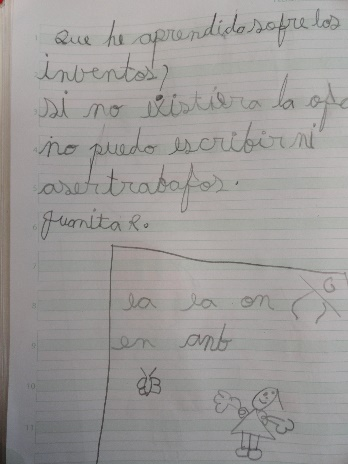 que he aprendido sofre los
inventos?
si no existiera la
no puedo escribir ni
aser trabafos.
la la on
en anb